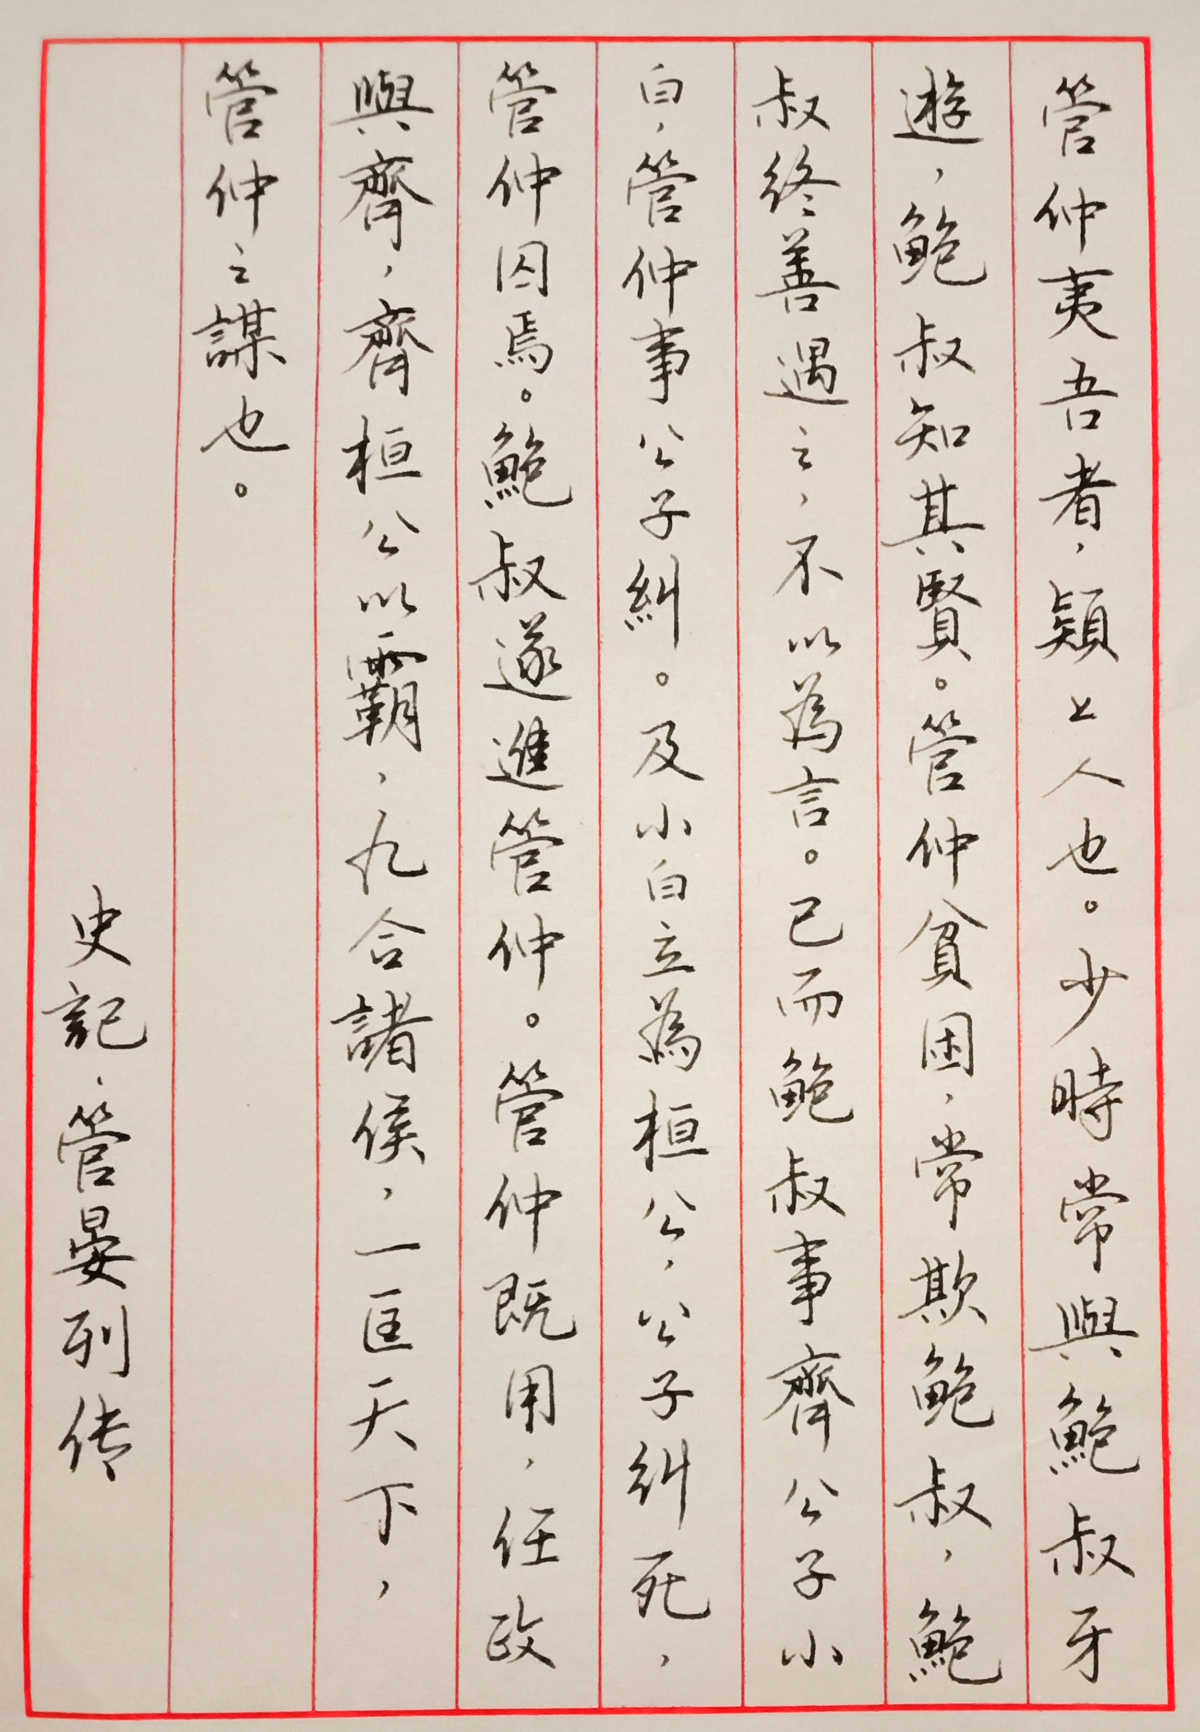 管仲夷吾者，潁上人也。少時常與鮑叔牙
遊，鮑叔知其賢。管仲貧困，常欺鮑叔，鮑
叔終善遇之，不以為言。已而鮑叔事齊公子小
白，管仲事公子糾。及小白立為桓公，公子糾死，
管仲囚焉。鮑叔遂進管仲。管仲既用，任政
與齊，齊桓公以霸，九合諸侯，一匡天下，
管仲之謀也。
史記·管晏列传